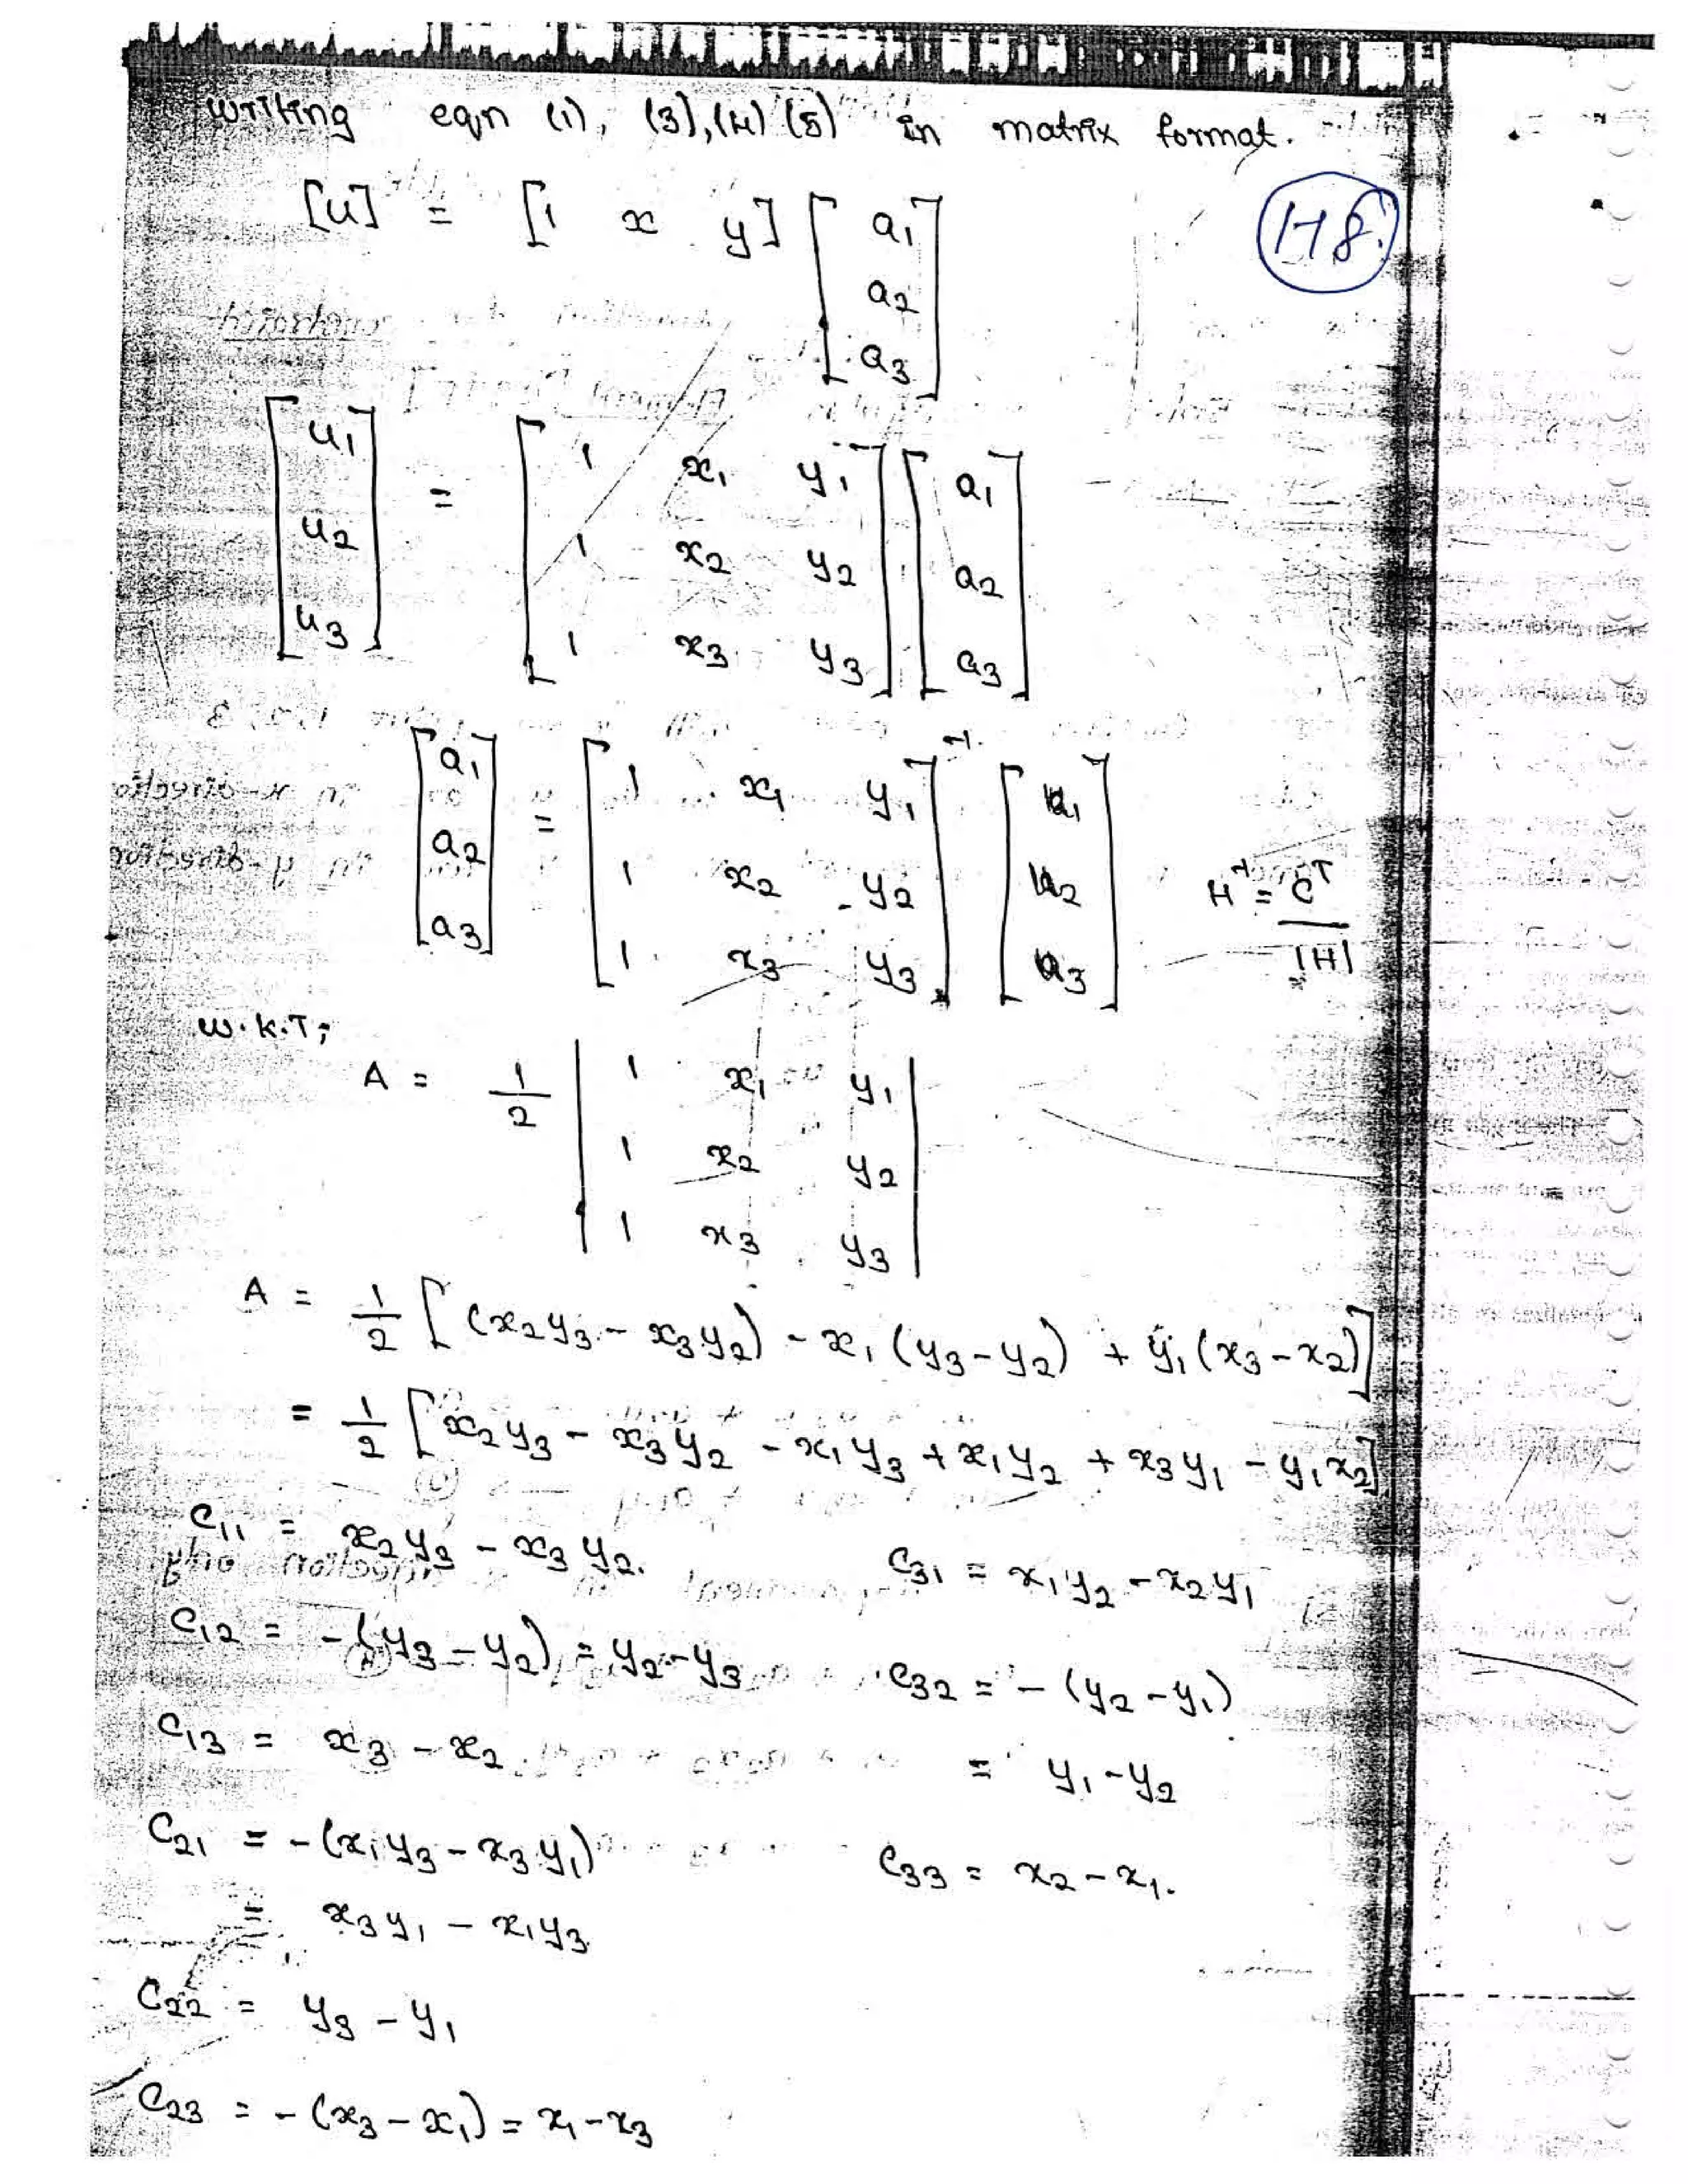 writing eqn (1), (3),(4) (5) in matrix format.
[u] = [1 x y] [a1
a2
a3]
H8.
[u1
u2
u3] = [1 x1 y1
1 x2 y2
1 x3 y3] [a1
a2
a3]
[a1
a2
a3] = [1 x1 y1
1 x2 y2
1 x3 y3]^-1 [u1
u2
u3]
H^-1 = C^T / |H|
W.K.T;
A = 1/2 | 1 x1 y1
1 x2 y2
1 x3 y3 |
A = 1/2 [ (x2y3 - x3y2) - x1 (y3-y2) + y1 (x3-x2)]
= 1/2 [ x2y3 - x3y2 - x1y3 + x1y2 + x3y1 - y1x2]
C11 = x2y3 - x3y2.
C12 = -(y3-y2) = y2-y3
C13 = x3 - x2
C21 = -(x1y3 - x3y1)
= x3y1 - x1y3
C22 = y3 - y1
C23 = -(x3-x1) = x1-x3
C31 = x1y2 - x2y1
C32 = -(y2-y1)
= y1-y2
C33 = x2-x1.